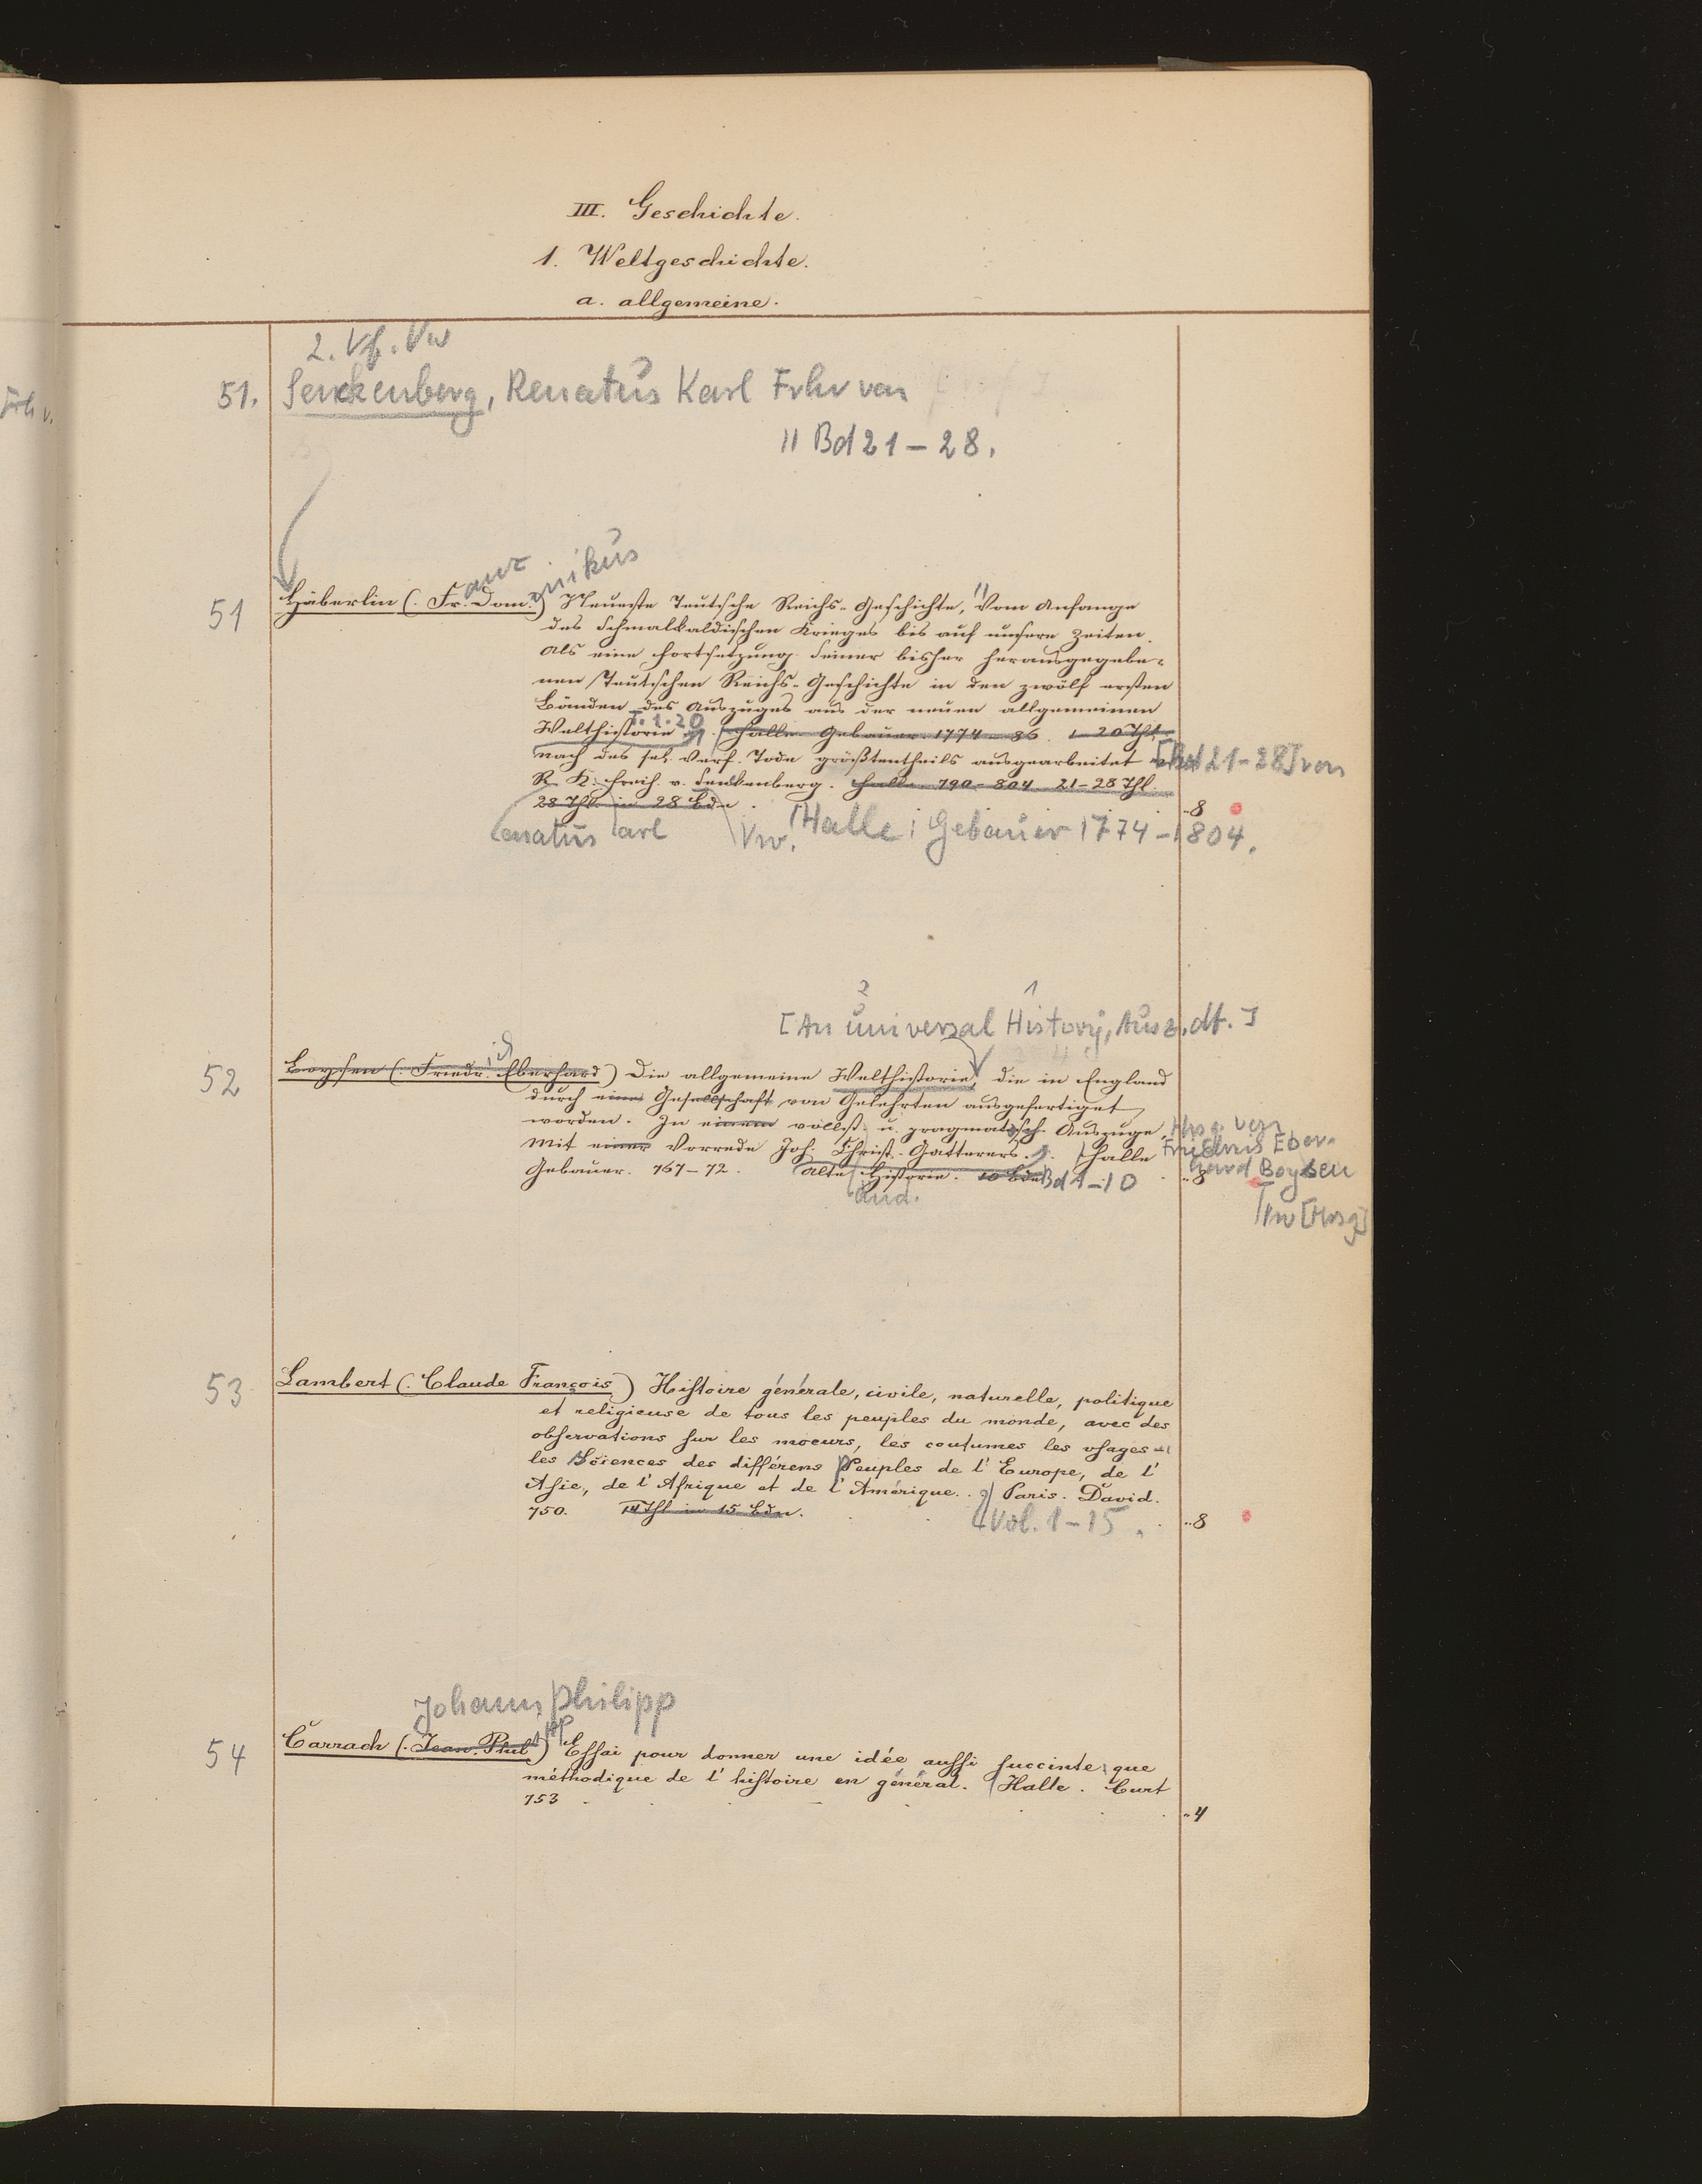 III. Geschichte.
1. Weltgeschichte.
a. allgemeine.
2. Vf. Vw
51. Senckenberg, Renatus Karl Frhr von
|| Bd 21-28.
anz onikus
51 Häberlin (. Fr. Dom.) Neueste Teutsche Reichs-Geschichte, Vom Anfange
des Schmalkaldischen Krieges bis auf unsere Zeiten.
Als eine Fortsetzung Seiner bisher herausgegebe-
nen Teutschen Reichs-Geschichte in den zwölf ersten
Bänden des Auszuges aus der neuen allgemeinen
T. 1-20
Welthistorie. Halle. Gebauer. 1774-86. 1-20 Thl.
nach des sel. Verf. Tode größtentheils ausgearbeitet [Bd 21-28] von
R. K. Freih. v. Senkenberg. Halle. 790-804. 21-28 Thl.
28 Thl. in 28 Bdn. ..8
enatus arl Vw. Halle: Gebauer 1774-1804.
2 1
[An universal History, Ausz. dt.]
ich
52 Boysen (. Friedr. Eberhard) Die allgemeine Welthistorie, die in England
durch eine Gesellschaft von Gelehrten ausgefertiget
worden. In einem vollst. u. pragmatisch. Auszuge, Hrsg. von
Mit einer Vorrede Joh. Christ. Gatterers. Halle Friedrich Eber-
hard Boysen
Gebauer. 767-72. Alte Historie. 10 Bde Bd 1-10 ..8
Vw [Hrsg]
53 Lambert (. Claude François) Histoire générale, civile, naturelle, politique
et religieuse de tous les peuples du monde, avec des
observations sur les moeurs, les coutumes les usages et
les Sciences des différens Peuples de l' Europe, de l'
Asie, de l' Afrique et de l' Amérique. Paris. David.
750. 14 Thl in 15 Bdn. Vol. 1-15. ..8
Johann Philipp
54 Carrach (. Jean. Phil.) Essai pour donner une idée aussi succinte que
méthodique de l' histoire en général. Halle. Curt
753 ..4